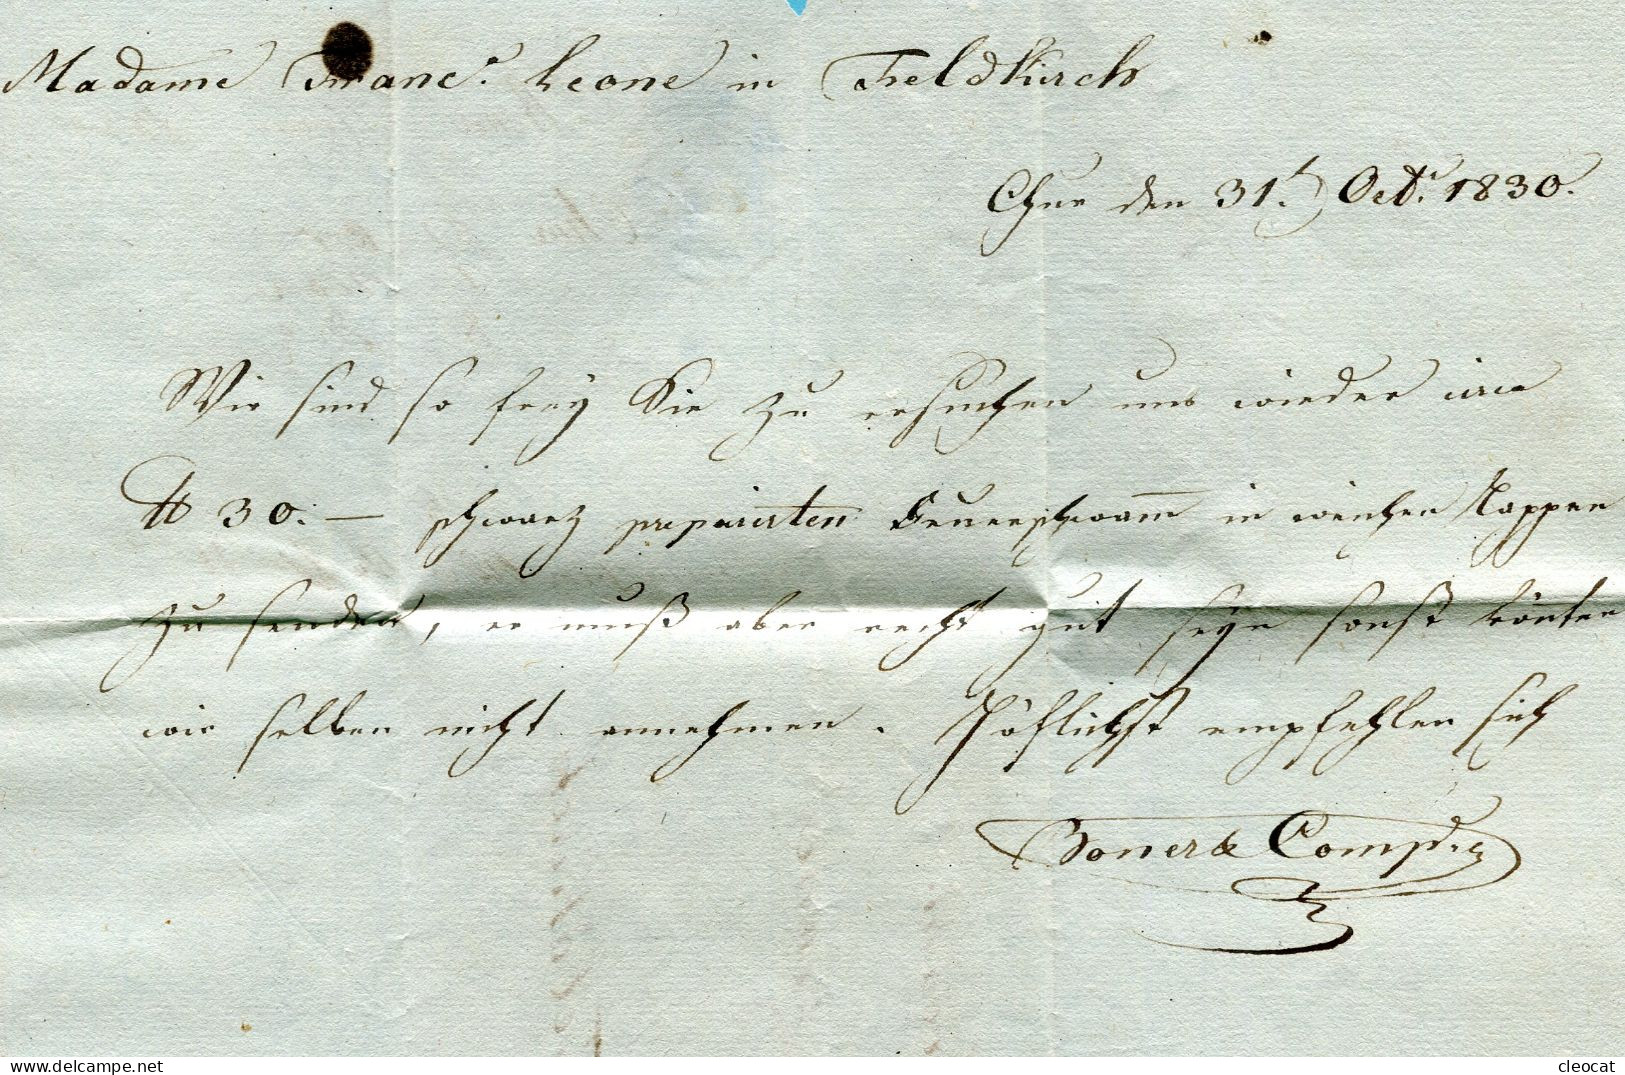 Madame Franc.ª Leone in Feldkirch
Chur den 31.t Oct.r 1830.
Wir sind so frey Sie zu ersuchen uns wieder circa
℔ 30. — schwarz preparirten Feuerschwam̅ in weichen Lappen
zu senden, er muß aber recht gut seyn sonst könten
wir selben nicht annehmen. Höflichst empfehlen sich
Boner & Comp.
cleocat